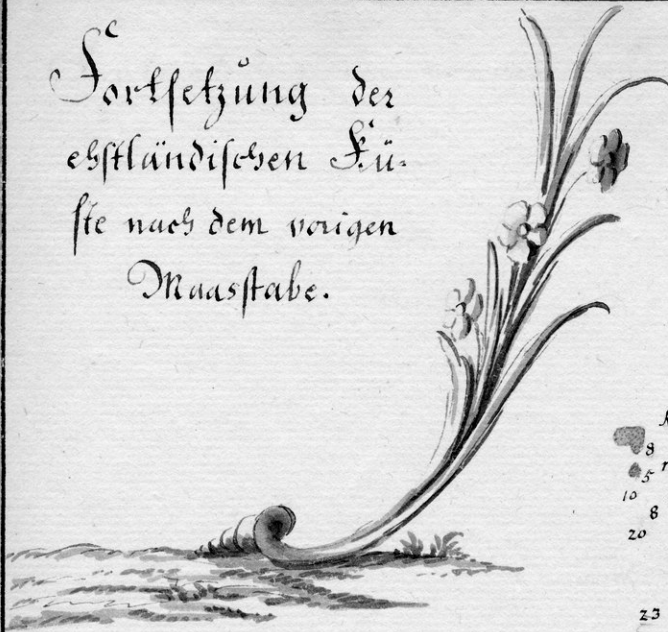 Fortsetzung der
ehstländischen Kü-
ste nach dem vorigen
Maasstabe.
8
5
10
8
20
23